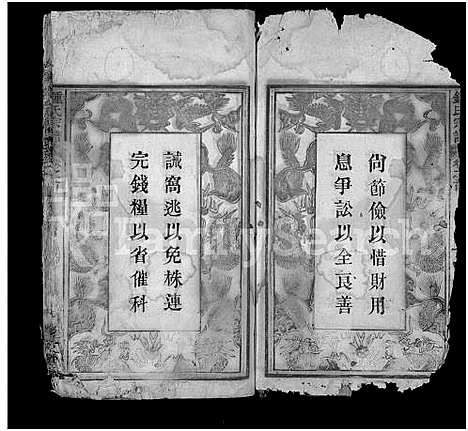 尚節儉以惜財用
息爭訟以全良善
誡窩逃以免株連
完錢糧以省催科
FamilySearch